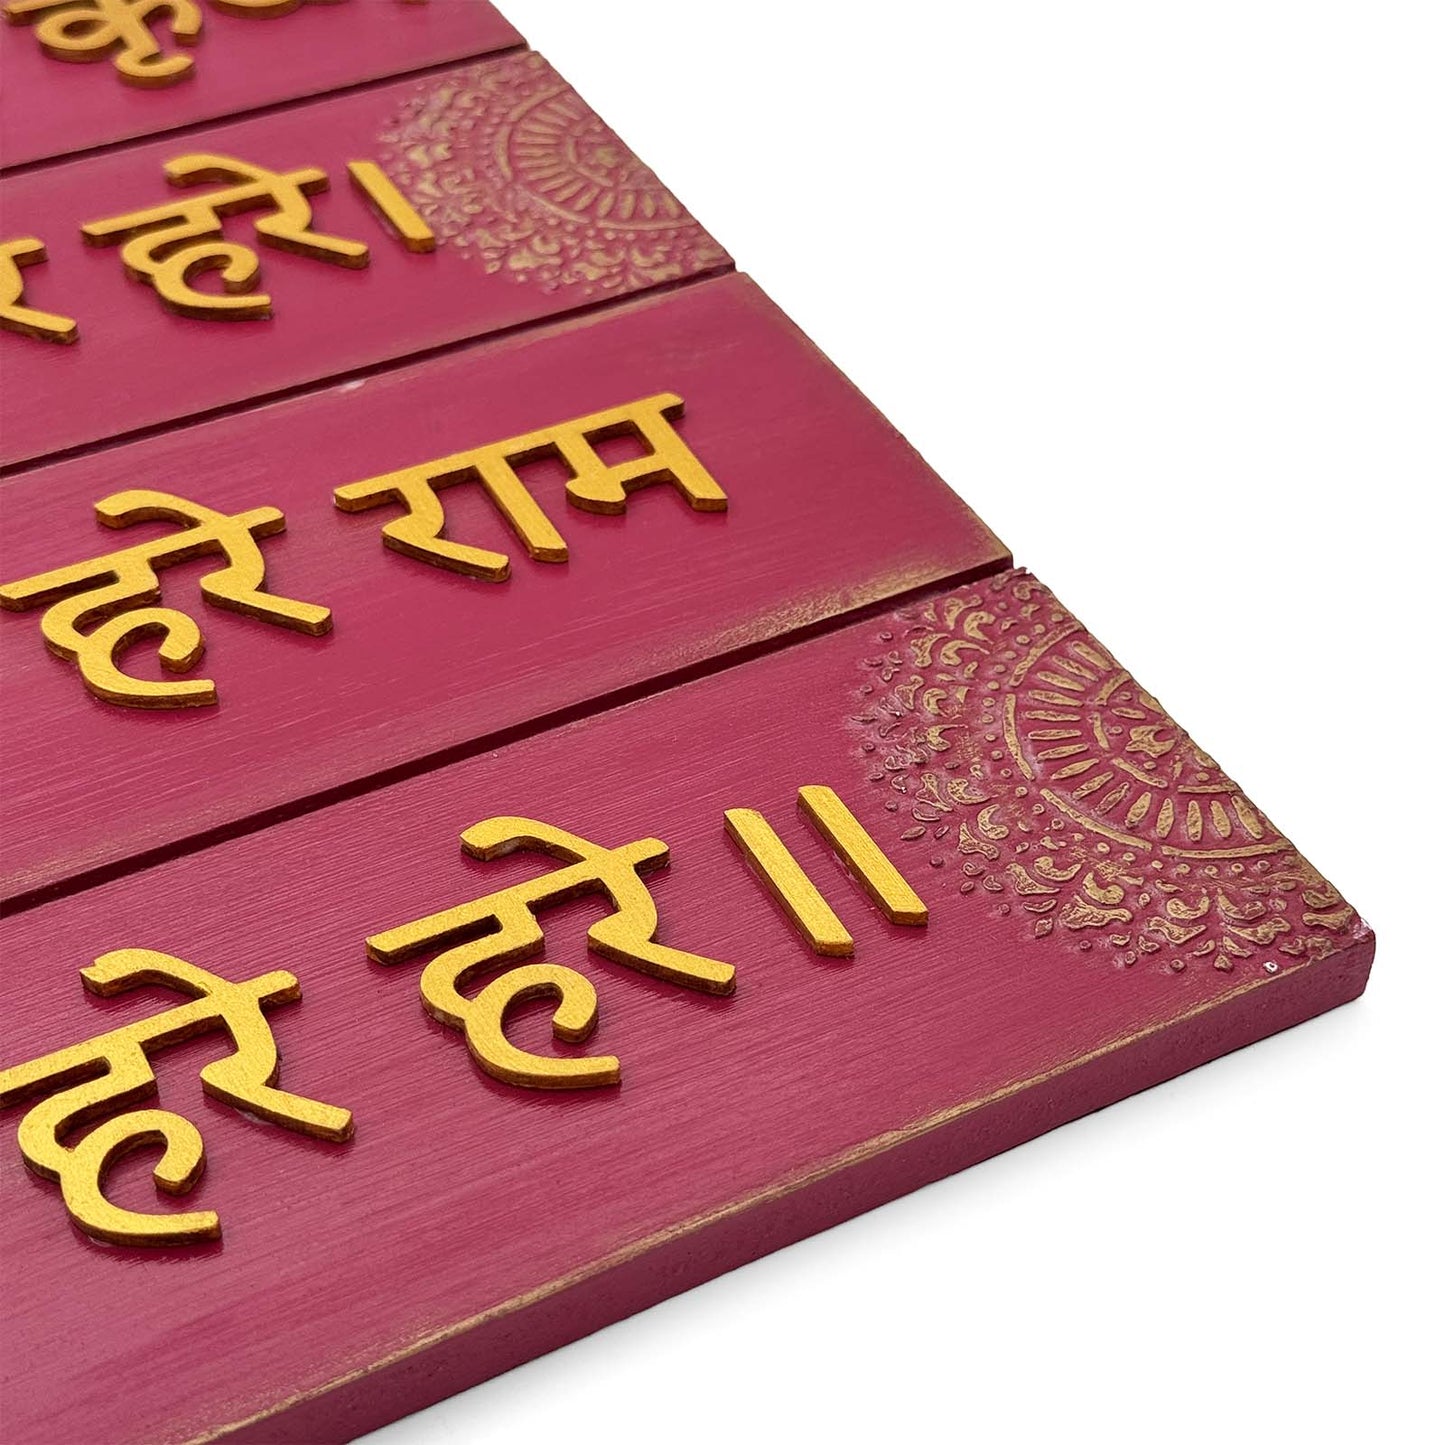 हरे।
हरे राम
हरे हरे॥